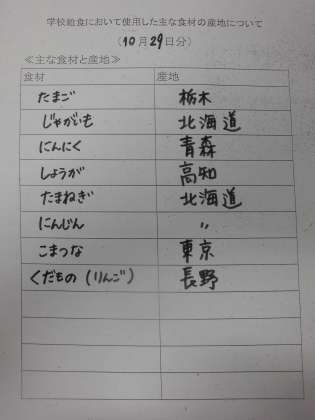 学校給食において使用した主な食材の産地について
(10月29日分)
≪主な食材と産地≫
食材 産地
たまご 栃木
じゃがいも 北海道
にんにく 青森
しょうが 高知
たまねぎ 北海道
にんじん 〃
こまつな 東京
くだもの(りんご) 長野